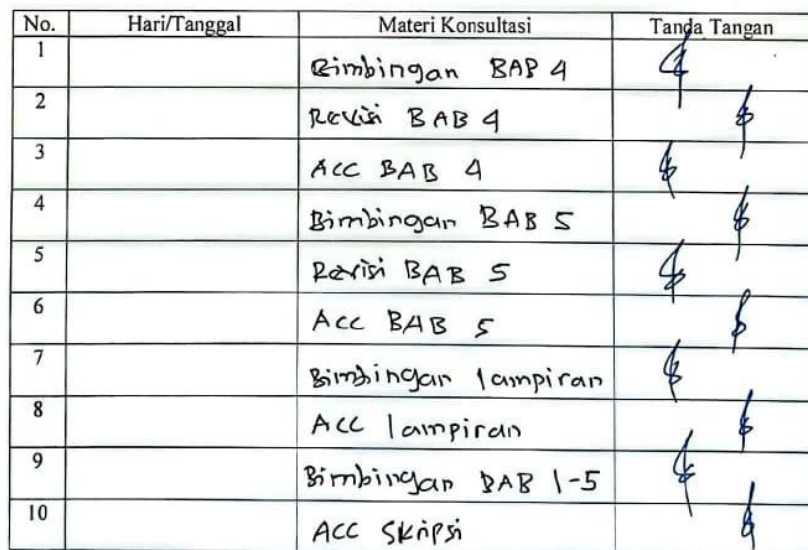 No. Hari/Tanggal Materi Konsultasi Tanda Tangan
1 Bimbingan BAB 4
2 Revisi BAB 4
3 Acc BAB 4
4 Bimbingan BAB 5
5 Revisi BAB 5
6 Acc BAB 5
7 Bimbingan lampiran
8 Acc lampiran
9 Bimbingan BAB 1-5
10 Acc Skripsi